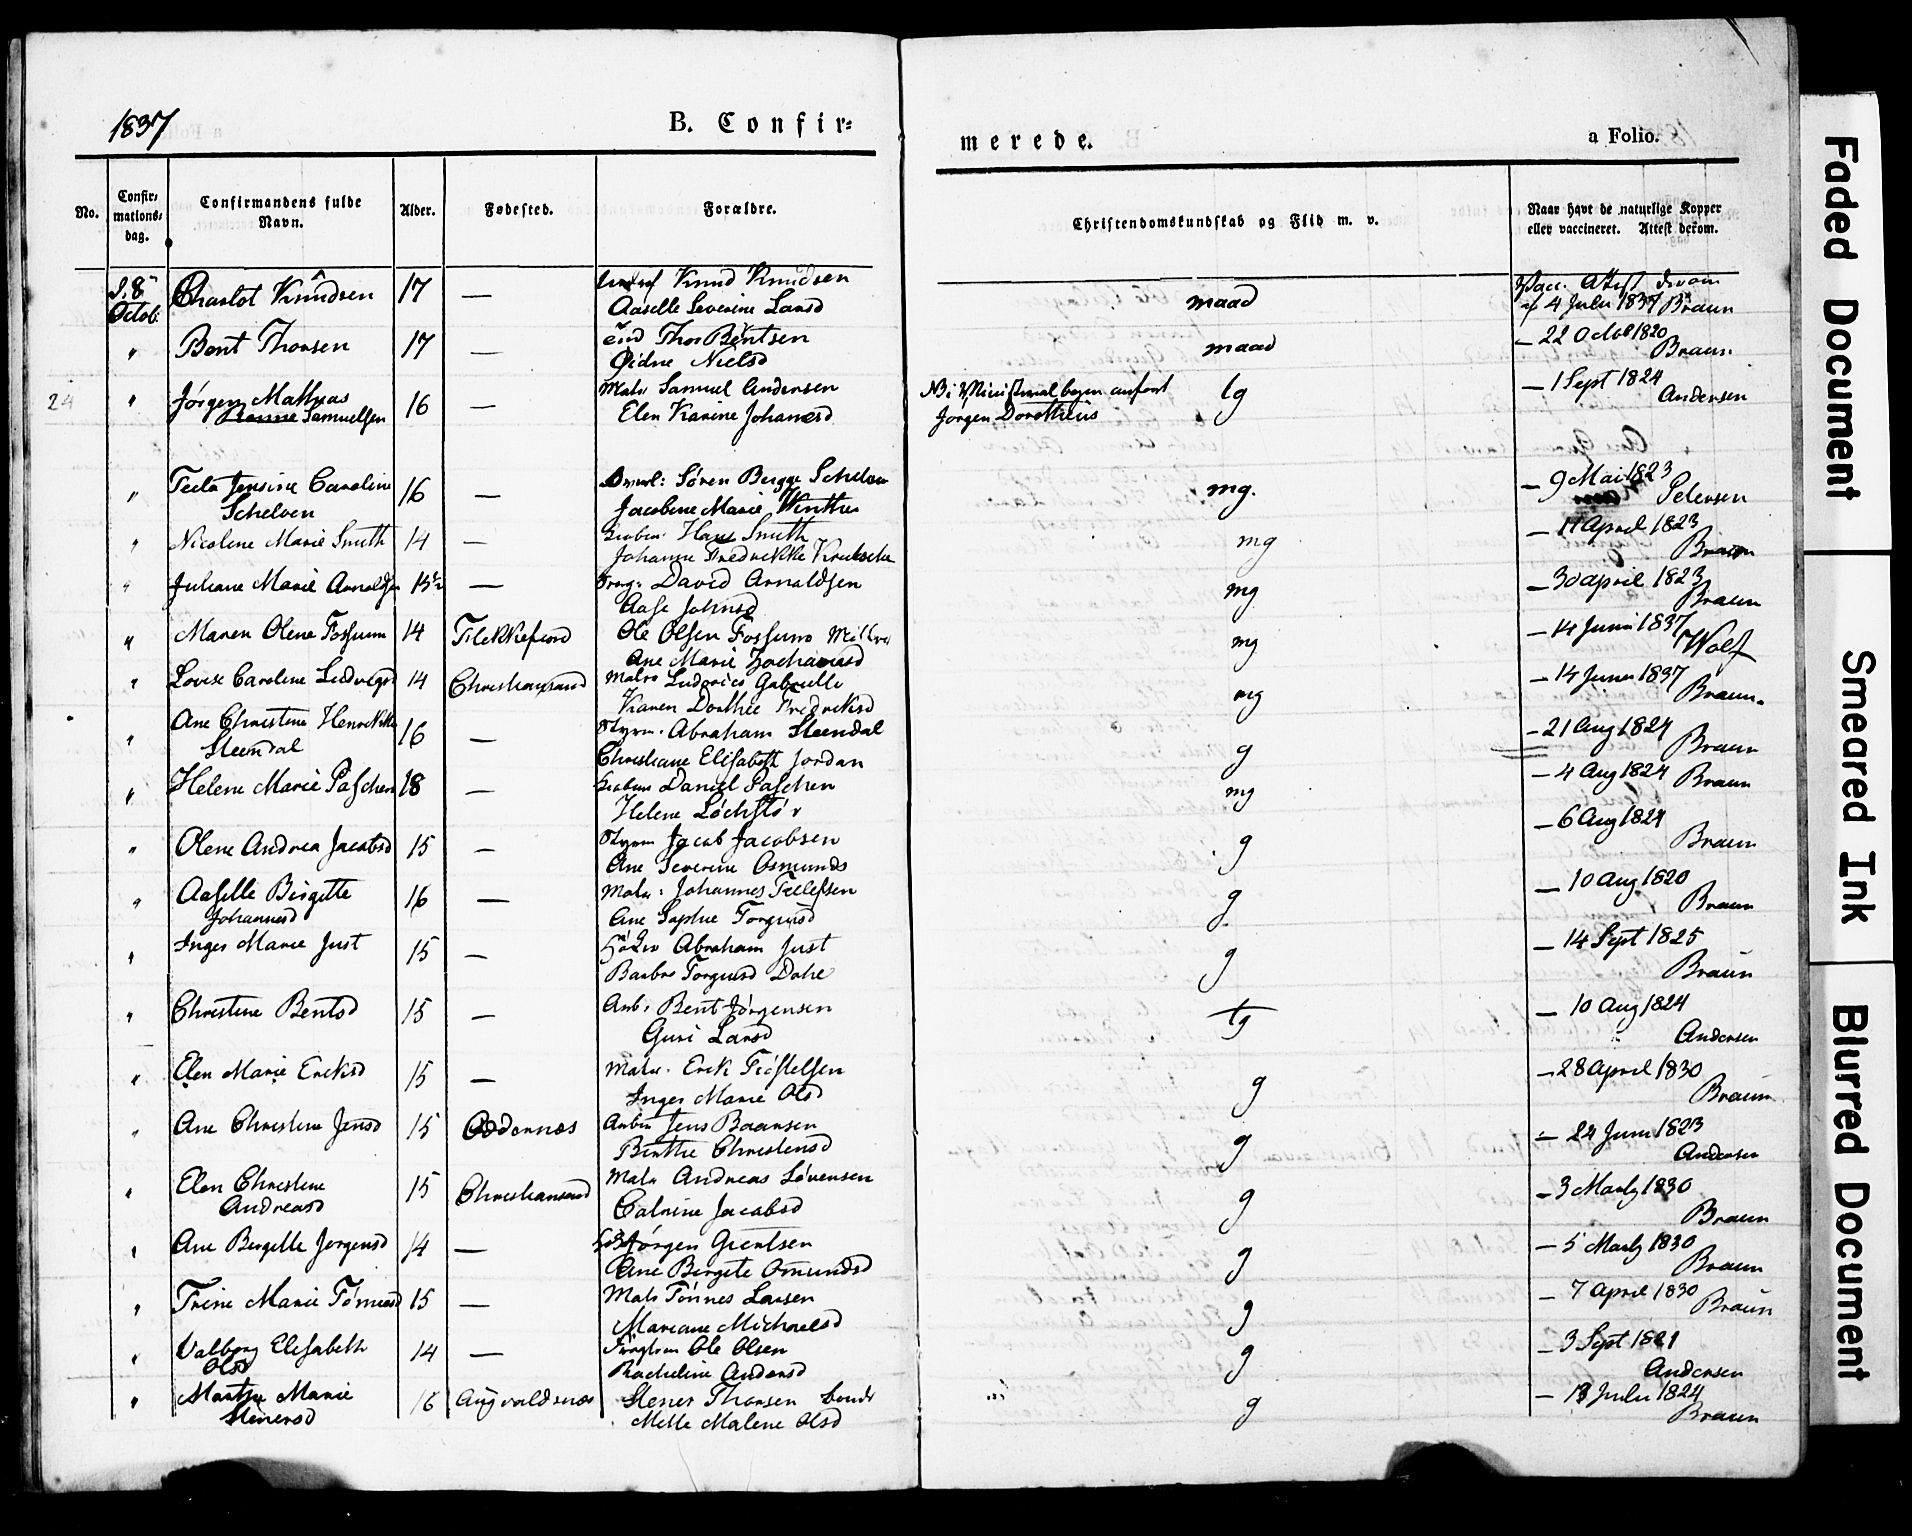 1837
B. Confir=
merede.
a Folio.
No.
Confir=
mations=
dag.
Confirmandens fulde
Navn.
Alder.
Fødested.
Forældre.
Christendomskundskab og Flid m. v.
Naar havt de naturlige Kopper
eller vaccineret. Attest derom.
d. 8
Octob.
Charlot Knudsen 17 — Knud Knudsen
Aaselle Severine Larsd
maad
Vacc. Attest derom
af 4 Julii 1837 Braun
" Bent Thorsen 17 — Thor Bentsen
Øidne Nielsd
maad
— 22 Octob 1820
Braun
24 " Jørgen Mathias
Samuelsen 16 — Matr Samuel Andersen
Elen Karine Johanesd
NB i Ministerialbogen anført
Jørgen Dorotheus
tg
— 1 Sept 1824
Andersen
" Tecla Jensine Caroline
Schelven 16 — Søren Bugge Schelven
Jacobine Marie Winther
mg.
— 9 Mai 1823
Petersen
" Nicoline Marie Smith 14 — Hans Smith
Johanne Fredrikke
mg
— 11 April 1823
Braun
" Juliane Marie Arnoldsen 15½ — David Arnoldsen
Aase Johnsd
mg
— 30 april 1823
Braun
" Maren Olene Fossum 14 Flekkefiord Ole Olsen Fossum
Ane Marie Zachariasd
mg
— 14 Junii 1837
Wolf
" Lovise Caroline Ludvigsd 14 Christiansand Matro Ludovico Gabrielle
Karen Dorthee Fredriksd
mg
— 14 Junii 1837
Braun.
" Ane Christine Henrikke
Steendal 16 — Styrm. Abraham Steendal
Christiane Elisabeth Jordan
g
— 21 Aug 1824
Braun
" Helene Marie Paschen 18 — Daniel Paschen
Helene Løchstør
mg
— 4 Aug 1824 Braun
" Olene Andrea Jacobsd 15 — Styrm Jacob Jacobsen
Ane Severine Osmunds
g
— 6 Aug 1824
Braun
" Aaselle Birgitte
Johannesd 16 — Matr: Johannes Tellefsen
Ane Sophie Torgiusd
g.
— 10 Aug 1820
Braun
" Inger Marie Just 15 — Abraham Just
Barbro Torgiusd Dahl
g
— 14 Sept 1825
Braun
" Christine Bentsd 15 — Arb. Bent Jørgensen
Guri Larsd
tg
— 10 Aug 1824
Andersen
" Elen Marie Eriksd 15 — Matr. Erik
Inger Marie Olsd
g
— 28 April 1830
Braun
" Ane Christine Jensd 15 Oddernæs Arbm Jens Baarsen
Birthe Christensd
g
— 24 Juni 1823
Andersen
" Elen Christine
Andreasd 15 Christiansand Matr Andreas Sørensen
Catrine Jacobsd
g
— 3 Marty 1830
Braun
" Ane Bergitte Jørgensd 14 — Jørgen Gientsen
Ane Birgite Omundsd
g
— 5 Marty 1830
Braun
" Trine Marie Tønnesd 15 — Matr Tönnes Larsen
Mariane Michaelsd
g
— 7 April 1830
Braun
" Valborg Elisabeth
Olsd 14 — Ole Olsen
Racheline Andersd
g
— 3 Sept 1821
Andersen
" Marthe Marie
Stenersd 16 Augvaldsnæs Stener Thorsen bonde
Mette Malene Olsd
g
— 13 Julii 1824
Braun
Faded Document
Smeared Ink
Blurred Document